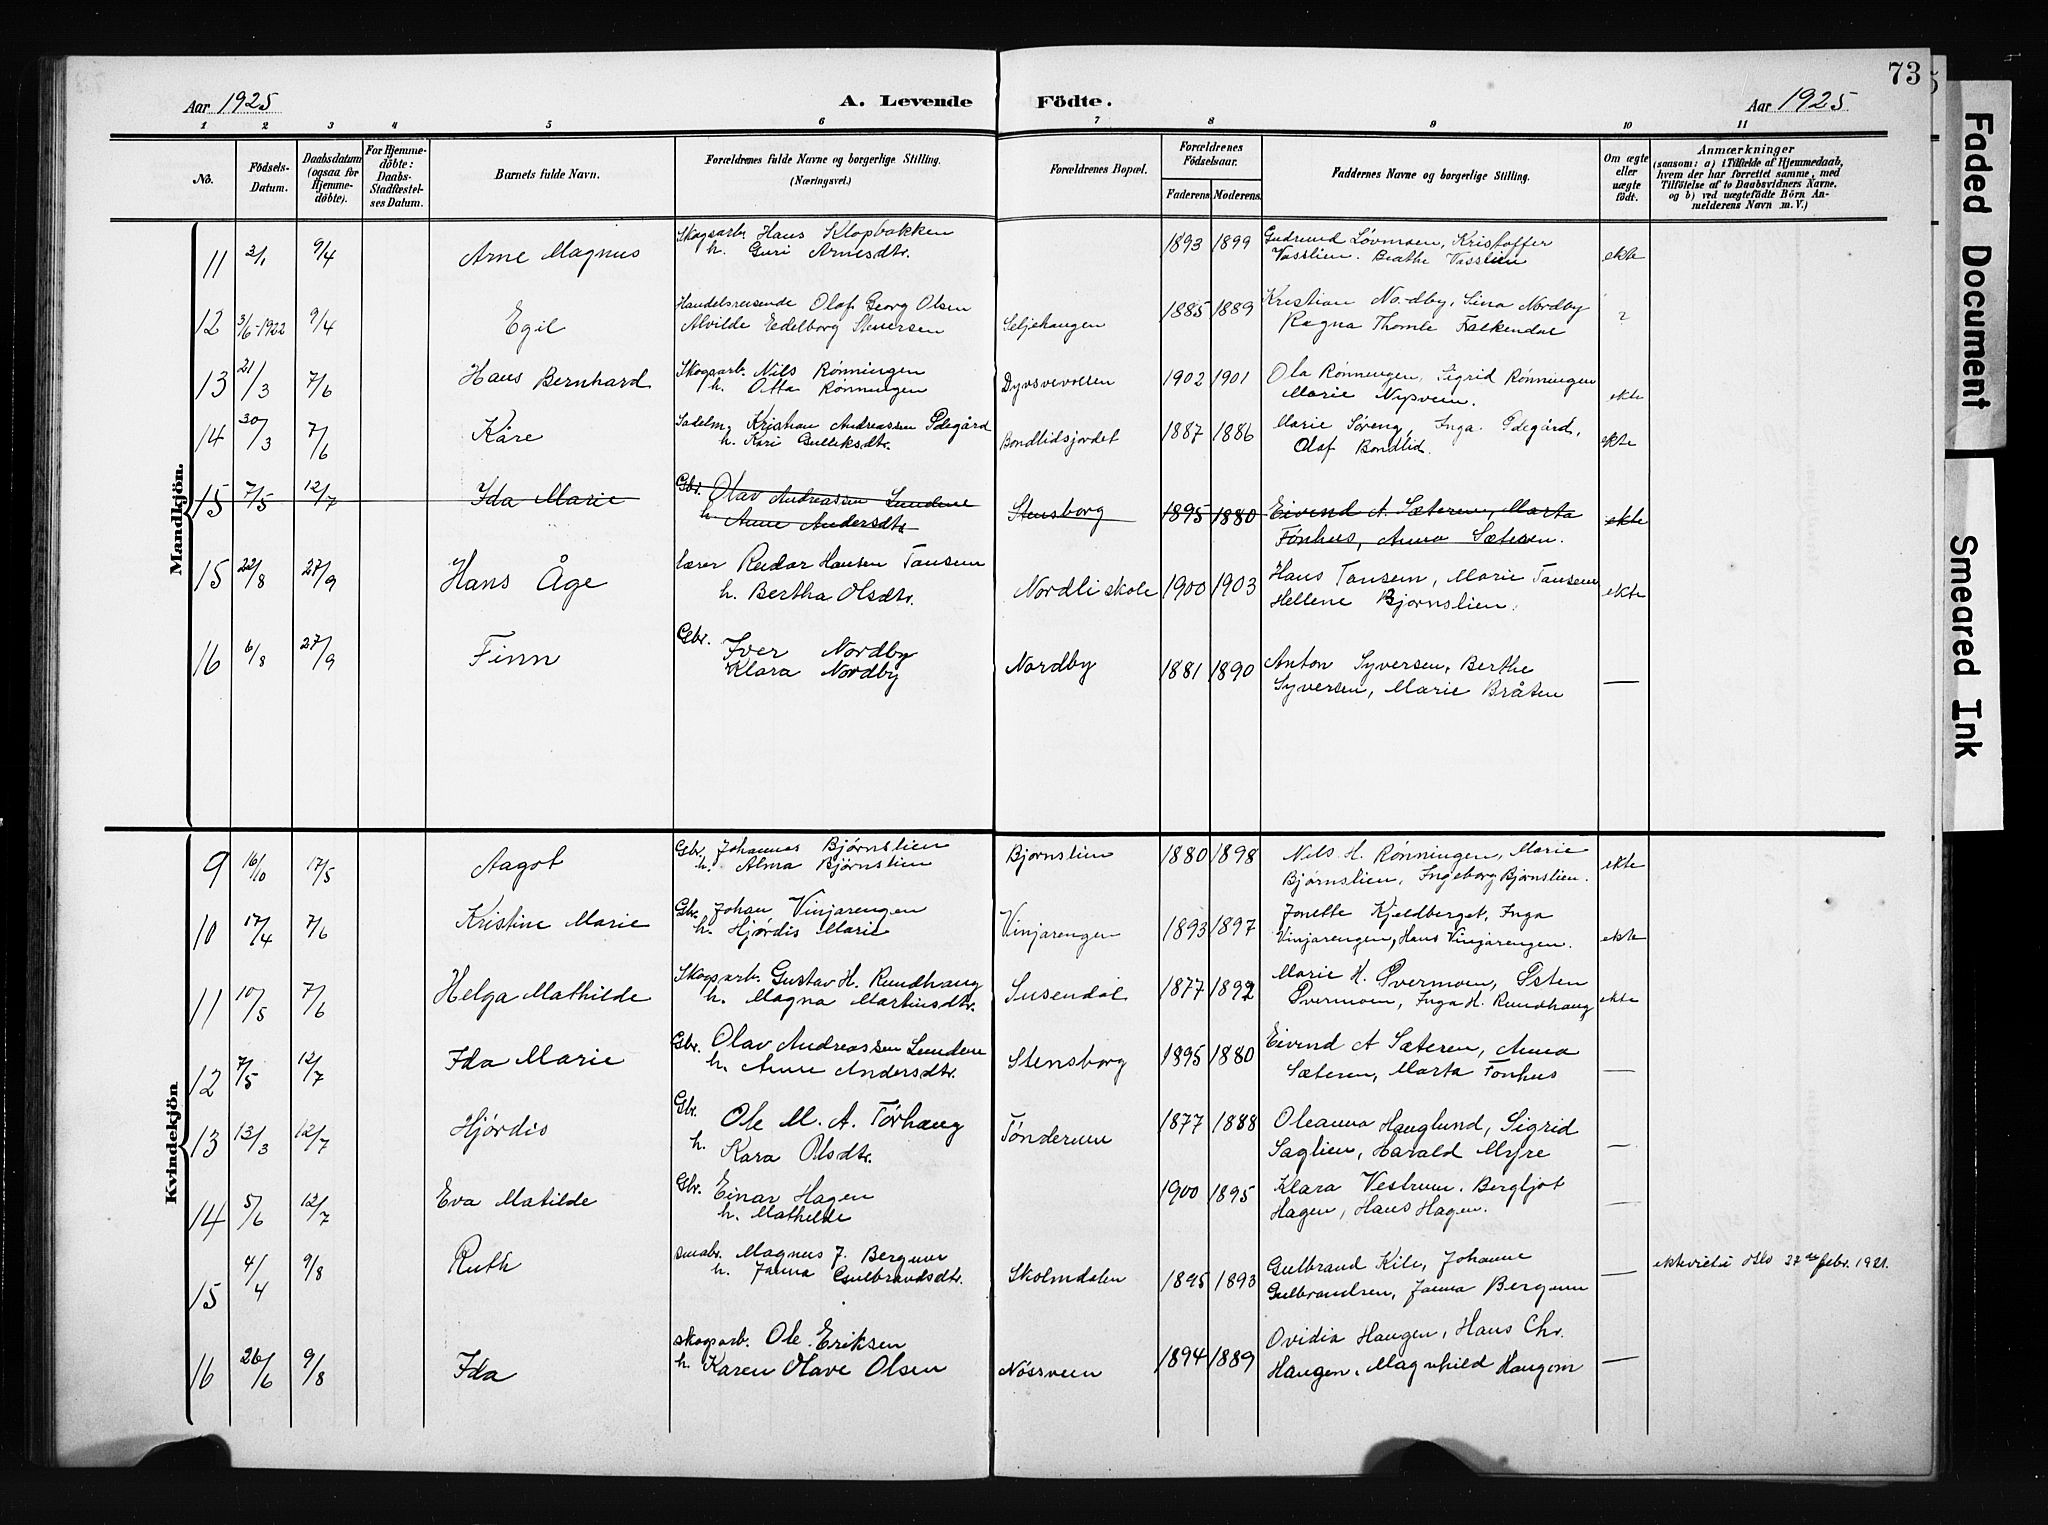 73
Aar 1925 A. Levende Födte. Aar 1925
1 2 3 4 5 6 7 8 9 10 11
No.
Födsels-Datum.
Daabsdatum (ogsaa for Hjemmedöbte).
For Hjemmedöbte: Daabs-Stadfæstelses Datum.
Barnets fulde Navn.
Forældrenes fulde Navne og borgerlige Stilling. (Næringsvei.)
Forældrenes Bopæl.
Forældrenes Födselsaar.
Faderens Moderens
Faddernes Navne og borgerlige Stilling.
Om ægte eller uægte födt.
Anmærkninger
(saasom: a) i Tilfælde af Hjemmedaab,
hvem der har forrettet samme, med
Tilföielse af to Daabsvidners Navne,
og b) ved uægtefödte Börn An-
melderens Navn m. V.)
Mandkjön.
11 3/1 9/4 Arne Magnus Skogsarb. Hans Klopbakken 1893 1899 Gudrund Løvmoen, Kristoffer ekte
h. Guri Arnesdtr. Vasslien. Beathe Vasslien
12 3/6-1922 9/4 Egil Handelsreisende Olaf Georg Olsen Seljehaugen 1885 1889 Kristian Nordby, Lina Nordby ?
Alvilde Edelborg Stenersen Ragna Thomle Falkendal
13 21/3 7/6 Hans Bernhard Skogsarb. Nils Rønningen Dyvsvevollen 1902 1901 Ola Rønningen, Sigrid Rønningen ekte
h. Otta Rønningen Marie Nysveen.
14 30/3 7/6 Kåre Sadelm. Kristian Andreassen Ødegård Bondlidsjordet 1887 1886 Marie Søreng, Inga Ødegård, ekte
h. Kari Gulliksdtr. Olaf Bondlid.
15 7/5 12/7 Ida Marie Gbr. Olav Andreassen Lundene Stensborg 1895 1880 Eivind A. Sæteren, Marta ekte
h. Anne Andersdtr. Fønhus, Anna Sæteren.
15 22/8 27/9 Hans Åge Lærer Reidar Hansen Tansem Nordli skole 1900 1903 Hans Tansem, Marie Tansem ekte
h. Bertha Olsdtr. Hellene Bjørnslien.
16 6/8 27/9 Finn Gbr. Iver Nordby Nordby 1881 1890 Anton Syversen, Berthe —
Klara Nordby Syversen, Marie Bråten
Kvindekjön
9 16/10 17/5 Aagot Gbr. Johannes Bjørnslien Bjørnslien 1880 1898 Nils H. Rønningen, Marie ekte
h. Alma Bjørnslien Bjørnslien, Ingeborg Bjørnslien.
10 17/4 7/6 Kristine Marie Gbr. Johan Vinjarengen Vinjarengen 1893 1897 Jonette Kjeldberget, Inga ekte
h. Hjørdis Marie Vinjarengen, Hans Vinjarengen.
11 10/5 7/6 Helga Mathilde Skogsarb. Gustav H. Rundhaug Susendal 1877 1892 Marie H. Øvermoen, Østen ekte
h. Magna Martinsdtr. Øvermoen, Inga H. Rundhaug
12 7/5 12/7 Ida Marie Gbr. Olav Andreassen Lundene Stensborg 1895 1880 Eivind A Sæteren, Anna —
h. Anne Andersdtr. Sæteren, Marta Fønhus
13 13/3 12/7 Hjørdis Gbr. Ole M. A. Tørhaug Tønderum 1877 1888 Oleanna Hauglund, Sigrid —
h. Kara Olsdtr. Saglien, Harald Myre
14 5/6 12/7 Eva Matilde Gbr. Einar Hagen 1900 1895 Klara Vestrum. Bergljot —
h. Mathilde Hagen, Hans Hagen.
15 4/4 9/8 Ruth Smabr. Magnus J. Bergum Skolmdalen 1895 1893 Gulbrand Kile, Johanne — ekteviet i Oslo 27de febr. 1921.
h. Janna Gulbrandsdtr. Gulbrandsen, Janna Bergum
16 26/6 9/8 Ida Skogsarb. Ole Eriksen Nössveen 1894 1889 Ovidia Haugen, Hans Chr. —
h. Karen Olave Olsen Haugen, Magnhild Haugom
Faded Document
Smeared Ink